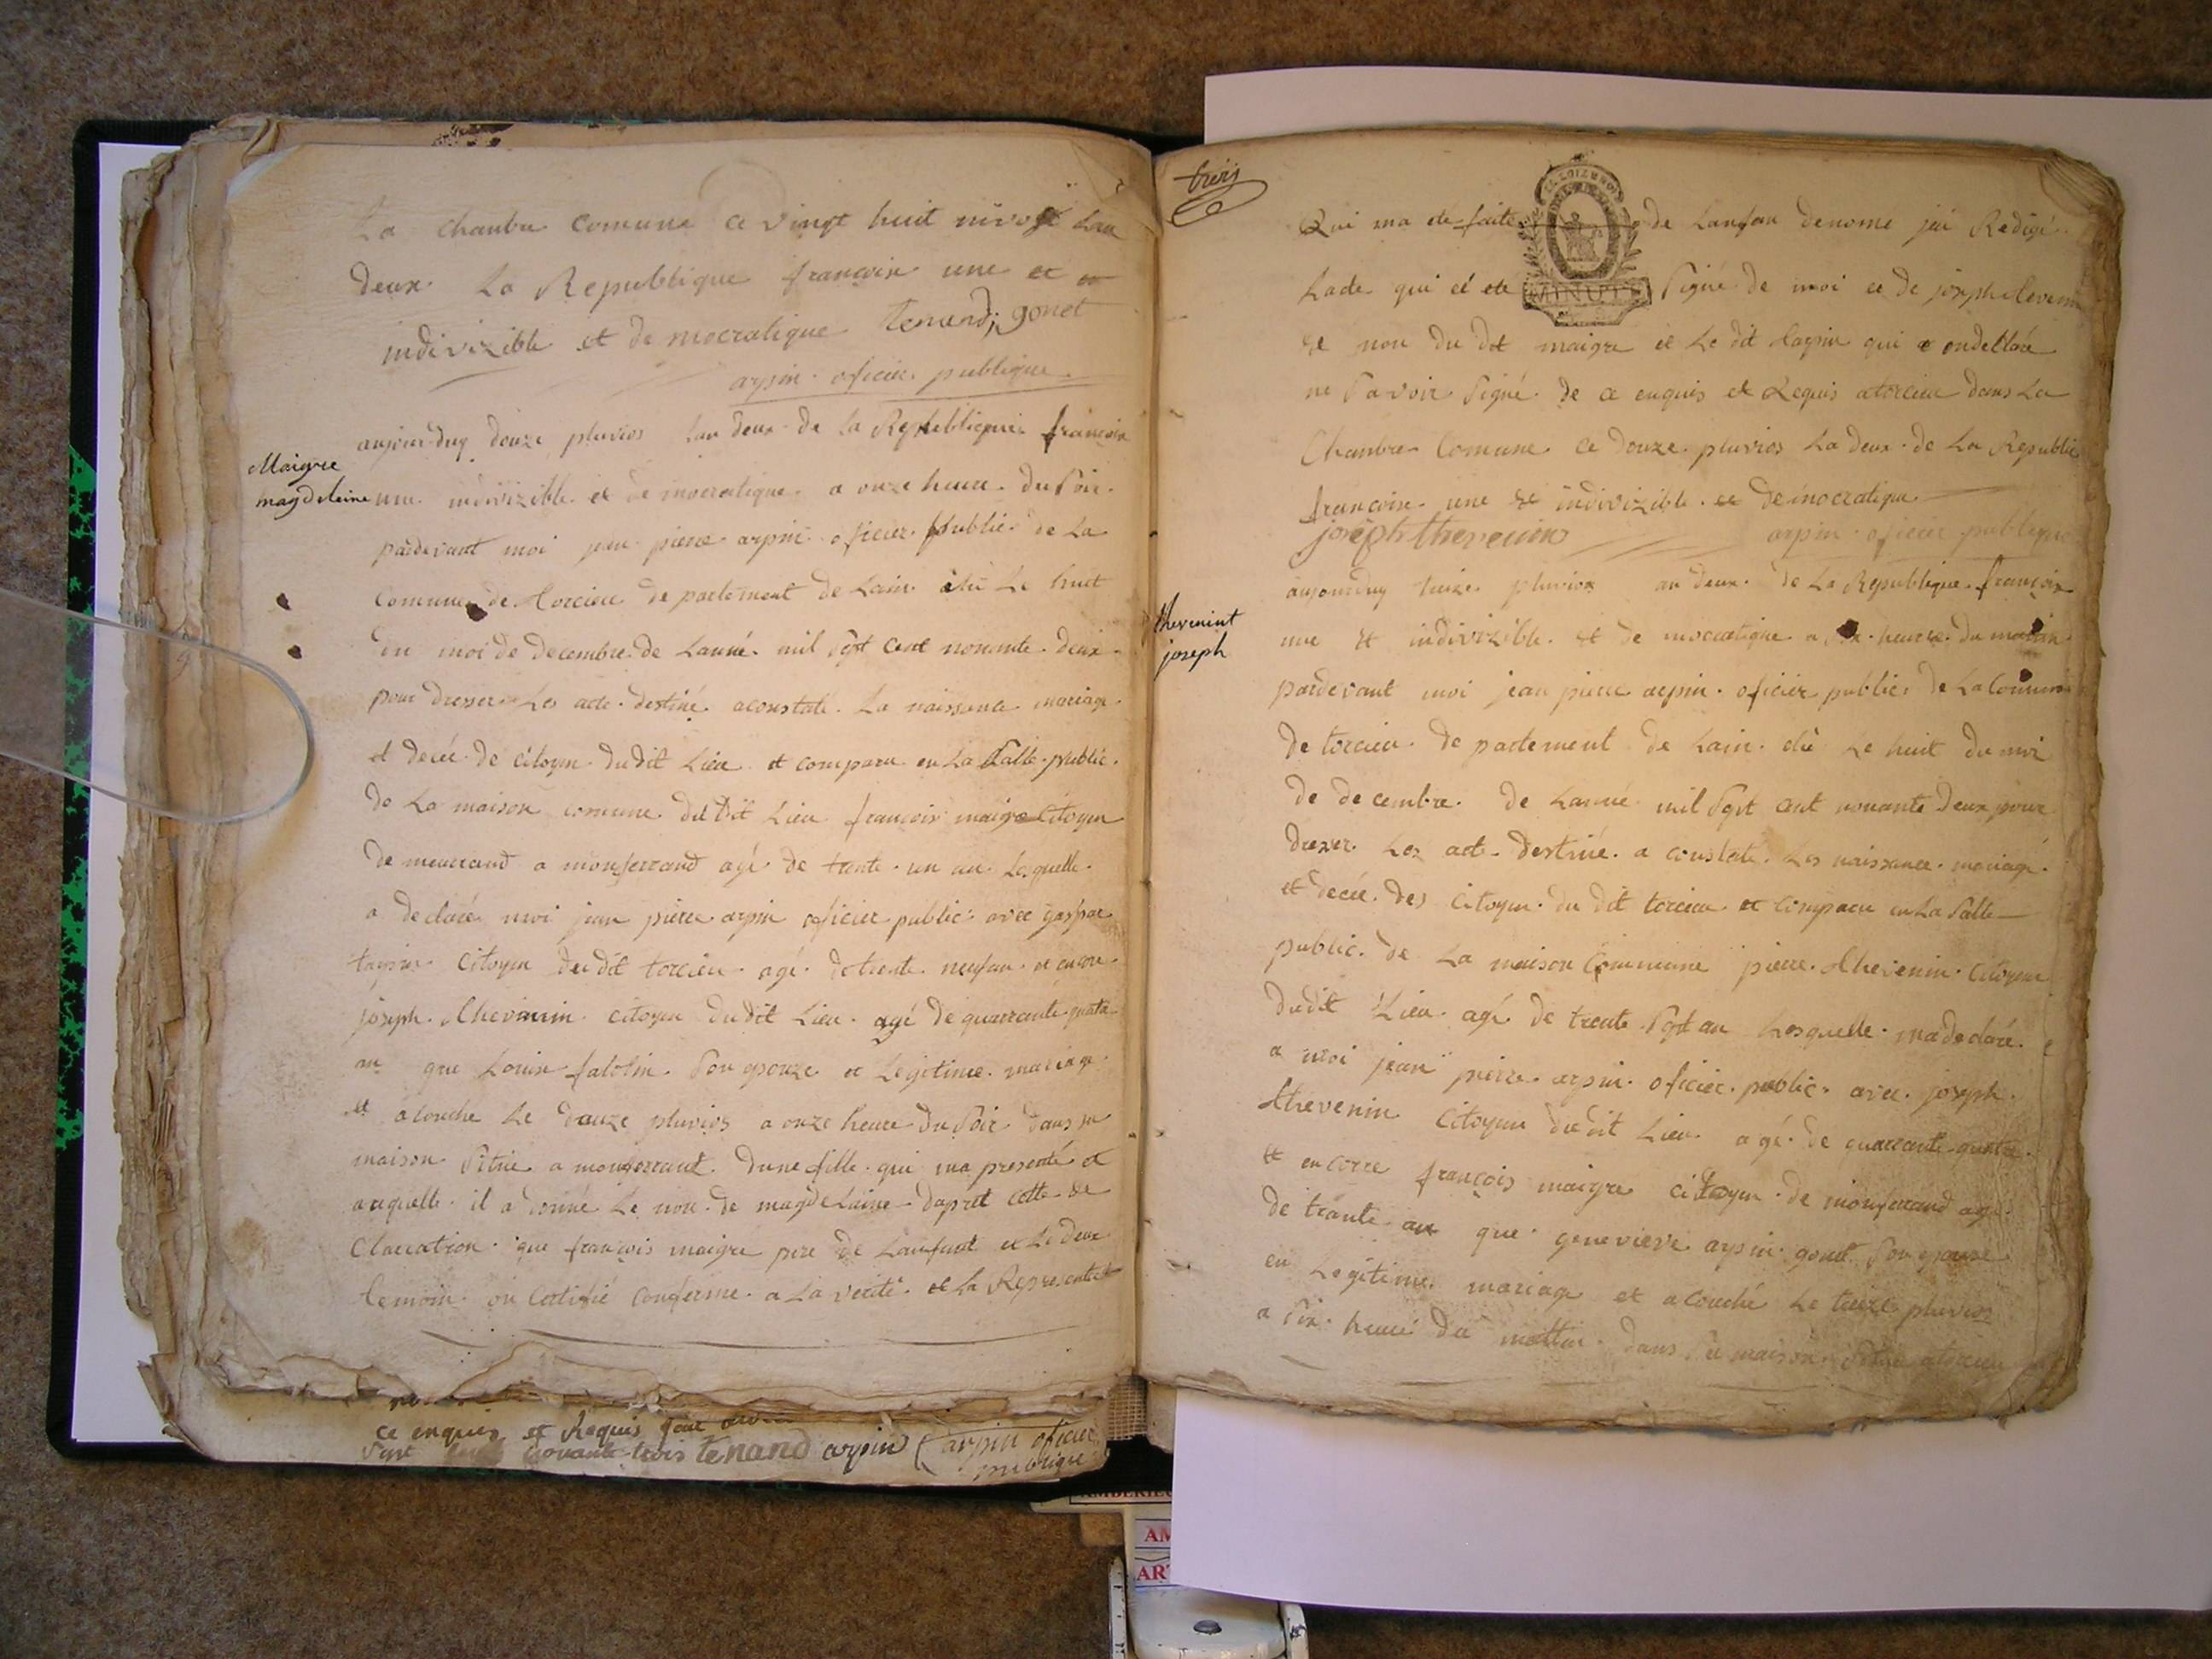 La chanbre comune ce vingt huit nivose Lan
deux La Republique francoise une et
indivizible et de mocratique tenand; gonet
arpin oficier publique
Maigre
magdeleine
aujourduy douze pluvios Lan deux de la Republique francoise
une indivizible et de mocratique a onze heure du Soir
pardevant moi jean pierre arpin oficier public de La
Commune de torcieu de partement de Lain élu Le huit
du moi de decembre de Lanné mil Sept Cent nonante deux
pour dresser Les acte destiné a constaté La naissance mariage
et decée de citoyen dudit Lieu et comparu en La Salle public
de La maison comune dudit Lieu francois maigre Citoyen
de meurand a monferrand agé de trente un an Lesquelle
a declaré moi jean pierre arpin oficier public avec gaspar
tayvin Citoyen du dit torcieu agé de trente neufan et encore
joseph thevenin citoyen dudit Lieu agé de quarrante quatre
an que Louise Son epouze et Legitime mariage
et a Couche Le douze pluvios a onze heure du Soir dans sa
maison Situé a monferrant dune fille qui ma presenté et
auquelle il a donné Le non de magdelaine dapret cette de
Claration que francois maigre pere de Lanfant et Lé deux
temoin on Certifié conferme a La verité et La Representation
ce enquis et Requis
Sept Cent novante trois tenand arpin arpin oficier
publique
trois
LA LOI LE ROI
MINUTE
Qui ma eté faite de Lanfan denome jai Redigé
Lacte qui a eté Signé de moi et de joseph tevenin
et non du dit maigre et Le dit tayvin qui on declaré
ne Savoir Signé de ce enquis et Requis a torcieu dans La
Chanbre Comune Ce douze pluvios La deux de La Republic
francoise une et indivizible et de mocratique
joseph thevenin arpin oficier publique
thevenint
joseph
aujourduy treize pluvios an deux de La Republique francoise
une et indivizible et de mocratique a six heure du matin
pardevant moi jean pierre arpin oficier public de La Commune
de torcieu de partement de Lain élu Le huit du moi
de decembre de Lanné mil Sept cent nonante deux pour
dresser Les acte destiné a constaté Les naissance mariage
et decée des citoyen du dit torcieu et comparu en La Salle
public de La maison Commune pierre thevenin Citoyen
dudit Lieu agé de trente Sept an Lesquelle ma declaré
a moi jean pierre arpin oficier public avec joseph
thevenin Citoyen dudit Lieu agé de quarrante quatre
et encorre françois maigre citoyen de monferrand agé
de trante an que genevieve arpin gonet Son epouse
en Legitime mariage et a couché Le treize pluvios
a Six heure du mattin dans Sa maison Situé a torcieu